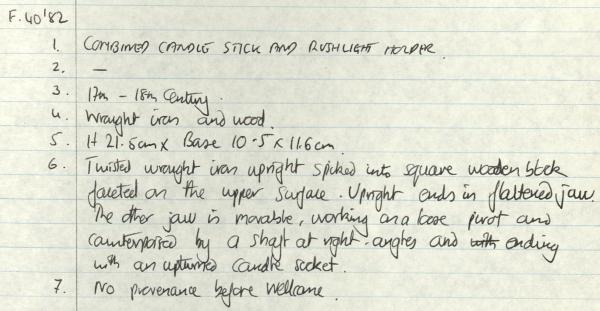 F.40'82
1. COMBINED CANDLE STICK AND RUSHLIGHT HOLDER.
2. —
3. 17th – 18th Century.
4. Wrought iron and wood.
5. H 21.6cm x Base 10.5 x 11.6cm.
6. Twisted wrought iron upright spiked into square wooden block
faceted on the upper surface. Upright ends in flattened jaw.
The other jaw is movable, working on a loose pivot and
counterpoised by a shaft at right-angles and with ending
with an upturned candle socket.
7. No provenance before Wellcome.